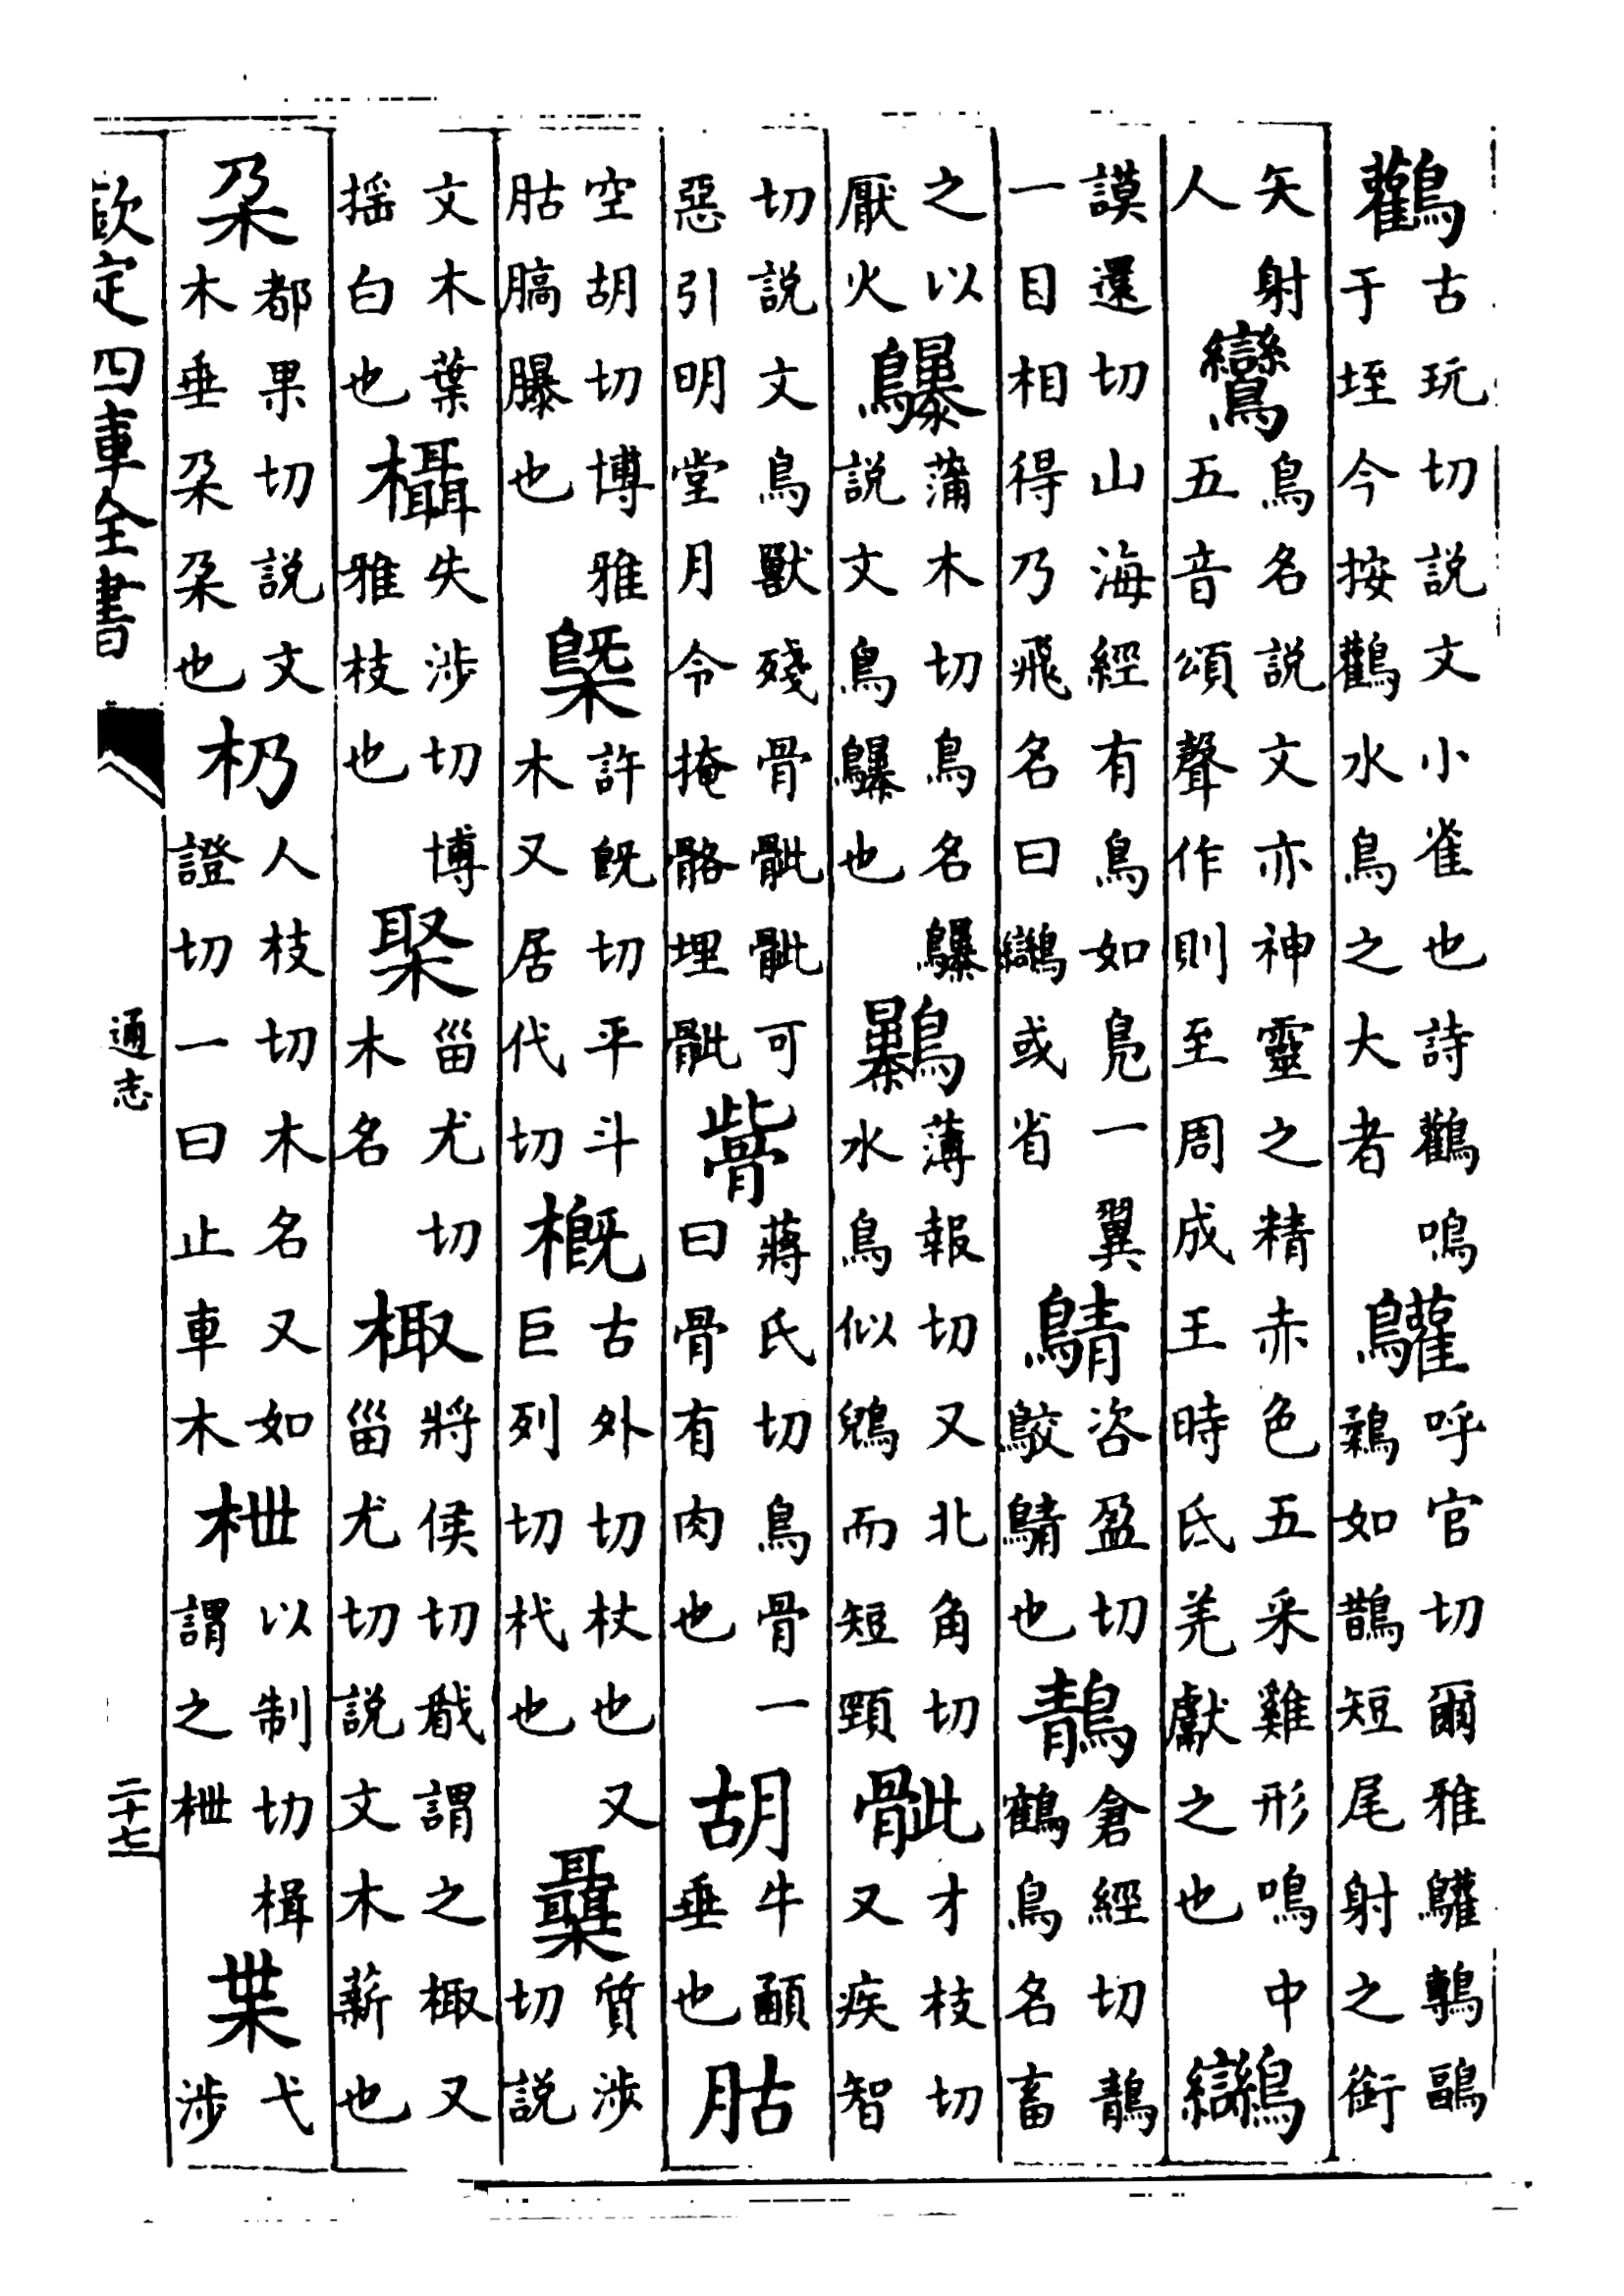 鸛古玩切説文小雀也詩鸛鳴于垤今按鸛水鳥之大者鸛呼官切爾雅鸛鷒鶝鶔如鵲短尾射之銜
矢射人鸞鳥名説文亦神靈之精赤色五采雞形鳴中五音頌聲作則至周成王時氐羌獻之也
謨還切山海經有鳥如鳧一翼一目相得乃飛名曰或省鶄咨盈切鵁鶄也鶄倉經切鶄鶴鳥名畜
之以厭火鸔蒲木切鳥名鸔説文鳥鸔也鸔薄報切又北角切水鳥似鵁而短頸骴才枝切又疾智
切説文鳥獸殘骨骴骴可惡引明堂月令掩骼埋骴㱔蔣氏切鳥骨一曰骨有肉也胡牛顄垂也𦙶
空胡切博雅𦙶膈曝也㮣許旣切平斗木又居代切概古外切杖也又巨列切杙也櫐質涉切説
文木葉揺白也欇失涉切博雅枝也棸甾尤切木名棷將侯切㦻謂之棷又甾尤切説文木薪也
朶都果切説文木垂朶朶也杤人枝切木名又如證切一曰止車木枻以制切楫謂之枻枼弋涉
欽定四庫全書
通志
二十七